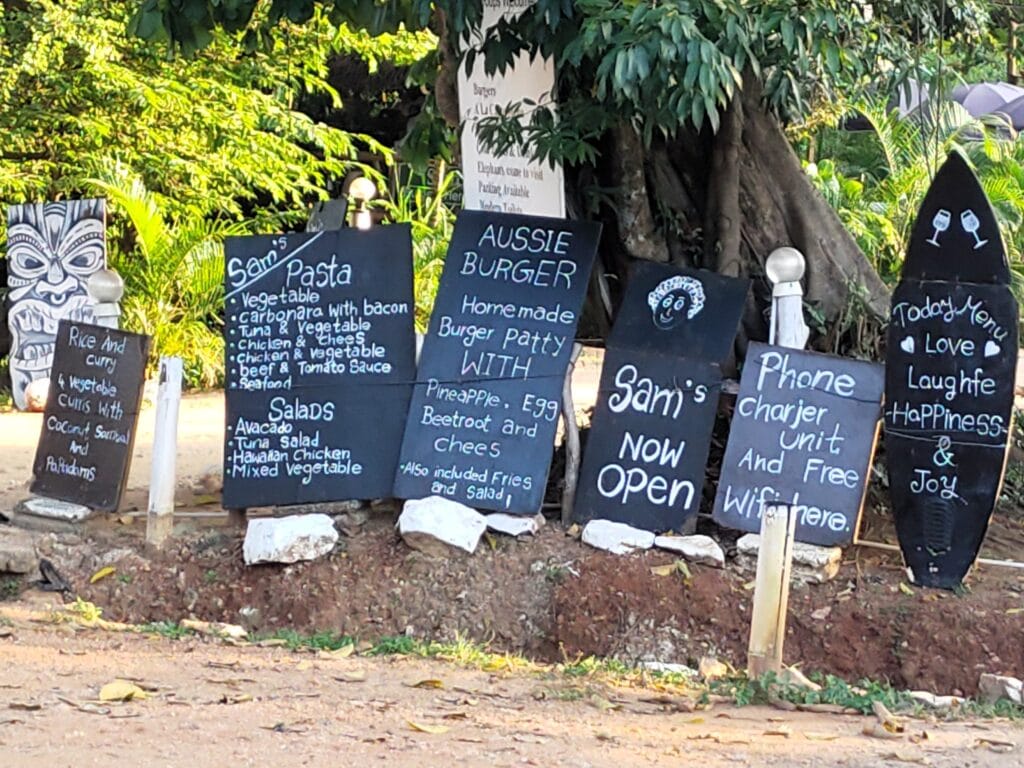 Burgers
Elephants come to visit
Parking Available
Modern Toilets
Rice And
curry
4 Vegetable
curris with
Coconut Sambal
And
Papadams
Sam's
Pasta
• Vegetable
• carbonara with bacon
• Tuna & Vegetable
• Chicken & chees
• chicken & vegetable
• beef & Tomato Sauce
• Seafood
SALADS
• Avacado
• Tuna Salad
• Hawaiian Chicken
• Mixed Vegetable
AUSSIE
BURGER
Homemade
Burger Patty
WITH
PineAPPle, Egg
Beetroot and
chees
• Also included Fries
and Salad
Sam's
NOW
OPEN
Phone
charjer
unit
And Free
Wifi here.
Today Menu
Love
Laughfe
-HaPPiness
&
Joy